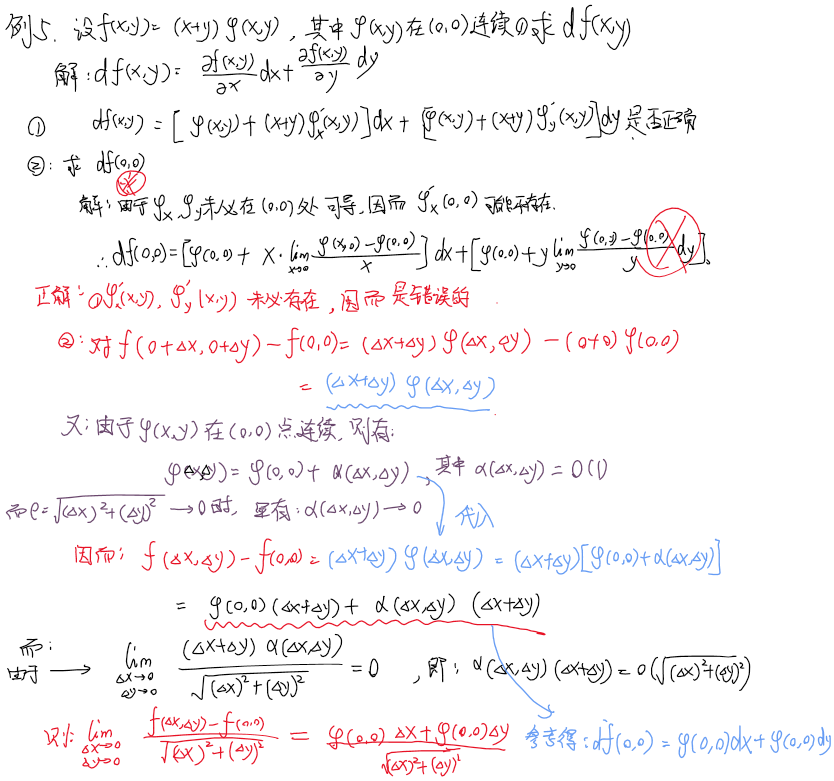 例5. 设f(x,y)= (x+y) φ(x,y), 其中 φ(x,y) 在(0,0)连续①求 df(x,y)
解: df(x,y)= ∂f(x,y)/∂x dx + ∂f(x,y)/∂y dy
① df(x,y) = [φ(x,y)+(x+y)φ'x(x,y)]dx + [φ(x,y)+(x+y)φ'y(x,y)]dy 是否正确
②: 求 df(0,0)
解: 由于 φx, φy未必在(0,0)处可导,因而 φ'x(0,0) 可能不存在.
∴ df(0,0)=[φ(0,0)+ x·lim x→0 (φ(x,0)-φ(0,0))/x] dx+[φ(0,0)+y lim y→0 (φ(0,y)-φ(0,0))/y dy].
正解: ①φ'x(x,y), φ'y(x,y) 未必存在,因而是错误的
②: 对 f(0+Δx,0+Δy)-f(0,0)= (Δx+Δy) φ(Δx,Δy) -(0+0) φ(0,0)
= (Δx+Δy) φ(Δx,Δy)
又: 由于 φ(x,y) 在(0,0)点连续, 则有:
φ(Δx,Δy)= φ(0,0)+ α(Δx,Δy), 其中 α(Δx,Δy) = o(1)
而 ρ=√((Δx)²+(Δy)²) →0时, 里有: α(Δx,Δy)→0
代入
因而: f(Δx,Δy)-f(0,0)=(Δx+Δy) φ(Δx,Δy) = (Δx+Δy)[φ(0,0)+α(Δx,Δy)]
= φ(0,0)(Δx+Δy)+ α(Δx,Δy) (Δx+Δy)
而:
由于 → lim Δx→0 Δy→0 (Δx+Δy) α(Δx,Δy)/√((Δx)²+(Δy)²) =0 , 即: α(Δx,Δy)(Δx+Δy)=o(√((Δx)²+(Δy)²))
则: lim Δx→0 Δy→0 (f(Δx,Δy)-f(0,0))/√((Δx)²+(Δy)²) = (φ(0,0) Δx+φ(0,0)Δy)/√((Δx)²+(Δy)²) 参考得: df(0,0) = φ(0,0)dx+φ(0,0)dy